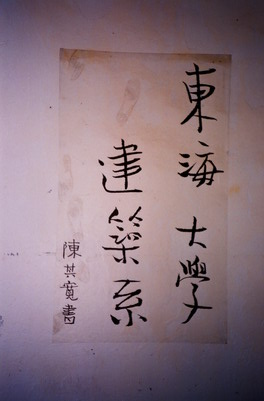 東海大學
建築系
陳其寬書